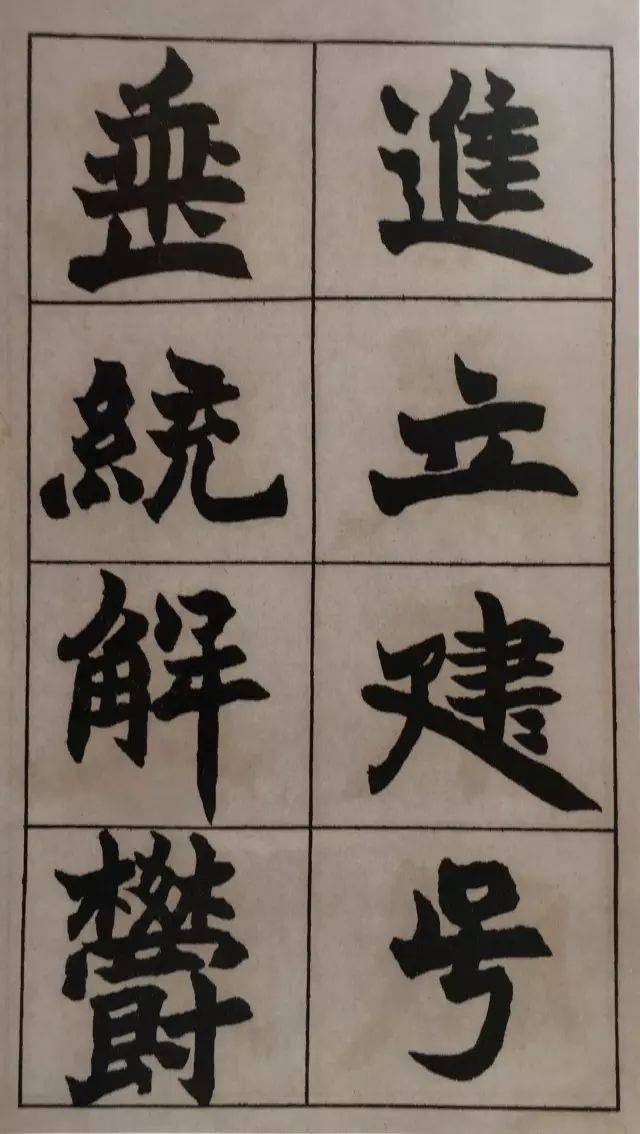 進立建号
垂統解欝